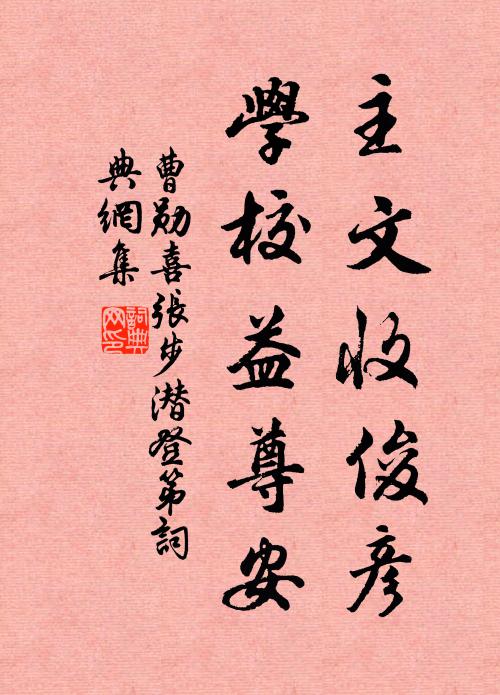 主文收俊彦
學校益尊安
曹勛喜張步潜登第詞
典網集
詞典
网印